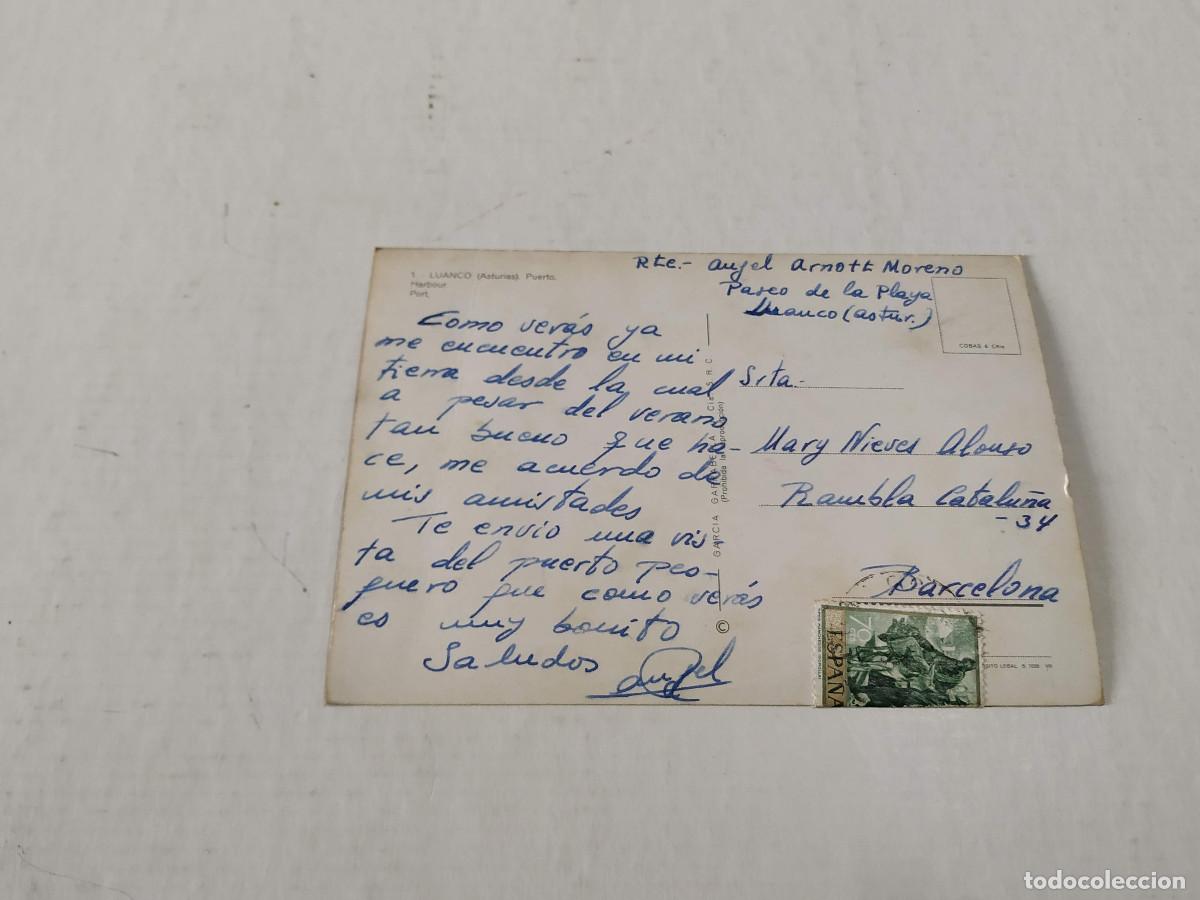 1. - LUANCO (Asturias). Puerto.
Harbour
Port.
Rte.- Angel Arnott Moreno
Paseo de la Playa
Luanco (Astur.)
COBAS &
Como verás ya
me encuentro en mi
tierra desde la cual
a pesar del verano
tan bueno que ha-
ce, me acuerdo de
mis amistades
Te envío una vis
ta del puerto pes-
quero que como verás
es muy bonito
Saludos
Angel
© GARCIA GARRABELLA Y Cia. S. R. C.
(Prohibida la reproducción)
Srta.
Mary Nieves Alonso
Rambla Cataluña
- 34
Barcelona
ESPAÑA
70
todocoleccion